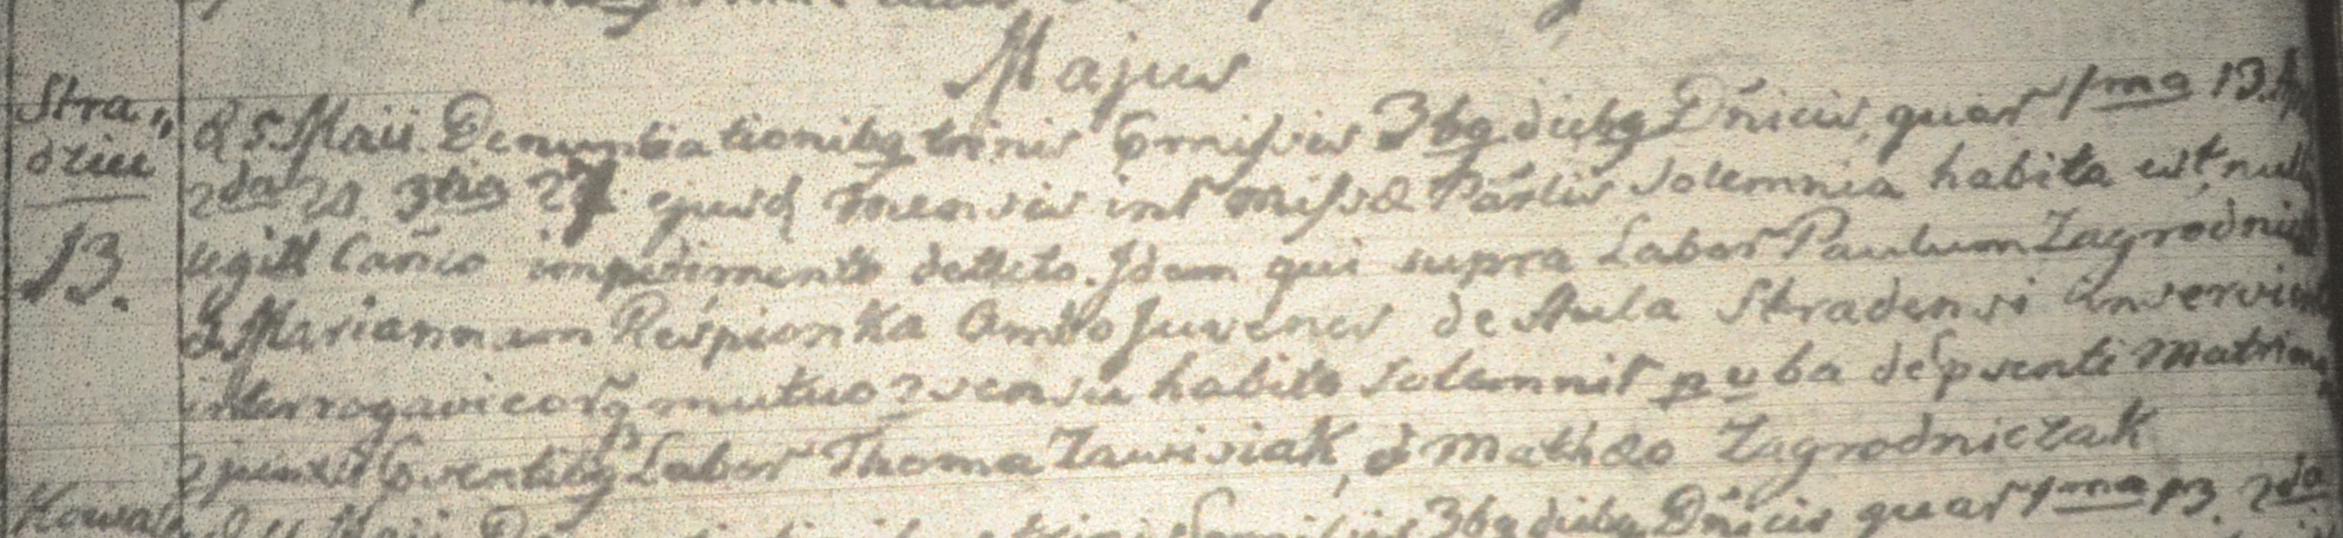 Majus
Stra„
dzieu
13.
d 5. Maii. Denuntiationibq trinis pmissis 3bq diebq Dñicis, quar 1ma 13. Apr
2da 20. 3tia 27 ejusd mensis int Missæ Parlis Solemnia habita est, null
legitt Cañco impedimento detecto. Idem qui supra Labor Paulum Zagrodnic
& Mariannam Respionka Ambo Juvenes de Aula Stradensi inservien
interrogavi eorq mutuo 2sensu habito Solemnit p v ba de psenti Matrim
2junxit psentibq Labor Thoma Zawisiak, & Mathæo Zagrodniczak
Kowal
d Maii 3bq diebq Dñicis quar 1ma 13. 2da